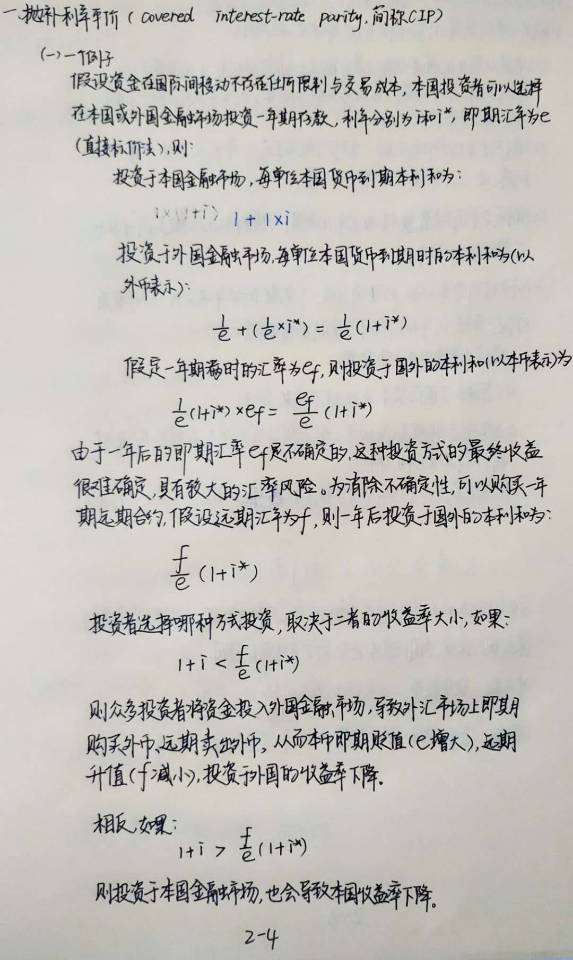 一、抛补利率平价(covered interest-rate parity,简称CIP)
(一)一个例子
假设资金在国际间移动不存在任何限制与交易成本,本国投资者可以选择
在本国或外国金融市场投资一年期存款,利率分别为i和i*,即期汇率为e
(直接标价法),则:
投资于本国金融市场,每单位本国货币到期本利和为:
1×(1+i) 1+1×i
投资于外国金融市场,每单位本国货币到期时的本利和为(以
外币表示):
1/e + (1/e × i*) = 1/e (1+i*)
假定一年期满时的汇率为ef,则投资于国外的本利和(以本币表示)为
1/e (1+i*) × ef = ef/e (1+i*)
由于一年后的即期汇率ef是不确定的,这种投资方式的最终收益
很难确定,具有较大的汇率风险。为消除不确定性,可以购买一年
期远期合约,假设远期汇率为f,则一年后投资于国外的本利和为:
f/e (1+i*)
投资者选择哪种方式投资,取决于二者的收益率大小,如果:
1+i < f/e (1+i*)
则众多投资者将资金投入外国金融市场,导致外汇市场上即期
购买外币、远期卖出外币,从而本币即期贬值(e增大),远期
升值(f减小),投资于外国的收益率下降。
相反,如果:
1+i > f/e (1+i*)
则投资于本国金融市场,也会导致本国收益率下降。
2-4